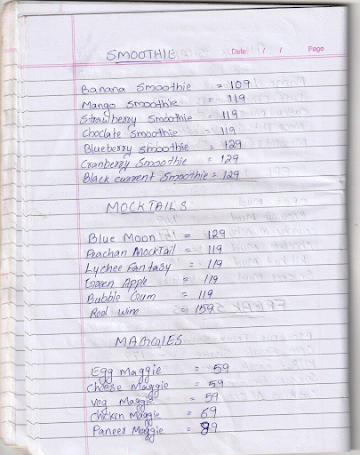 SMOOTHIE
Date / / Page
Banana Smoothie = 109
Mango Smoothie = 119
Strawberry Smoothie = 119
Choclate Smoothie = 119
Blueberry Smoothie = 129
Cranberry Smoothie = 129
Black current Smoothie = 129
MOCKTAILS
Blue Moon = 129
Peachan Mocktail = 119
Lychee Fantasy = 119
Green Apple = 119
Bubble Gum = 119
Red Wine = 159
MAGGIES
Egg Maggie = 59
Cheese Maggie = 59
Veg Maggie = 59
Chicken Maggie = 69
Paneer Maggie = 89